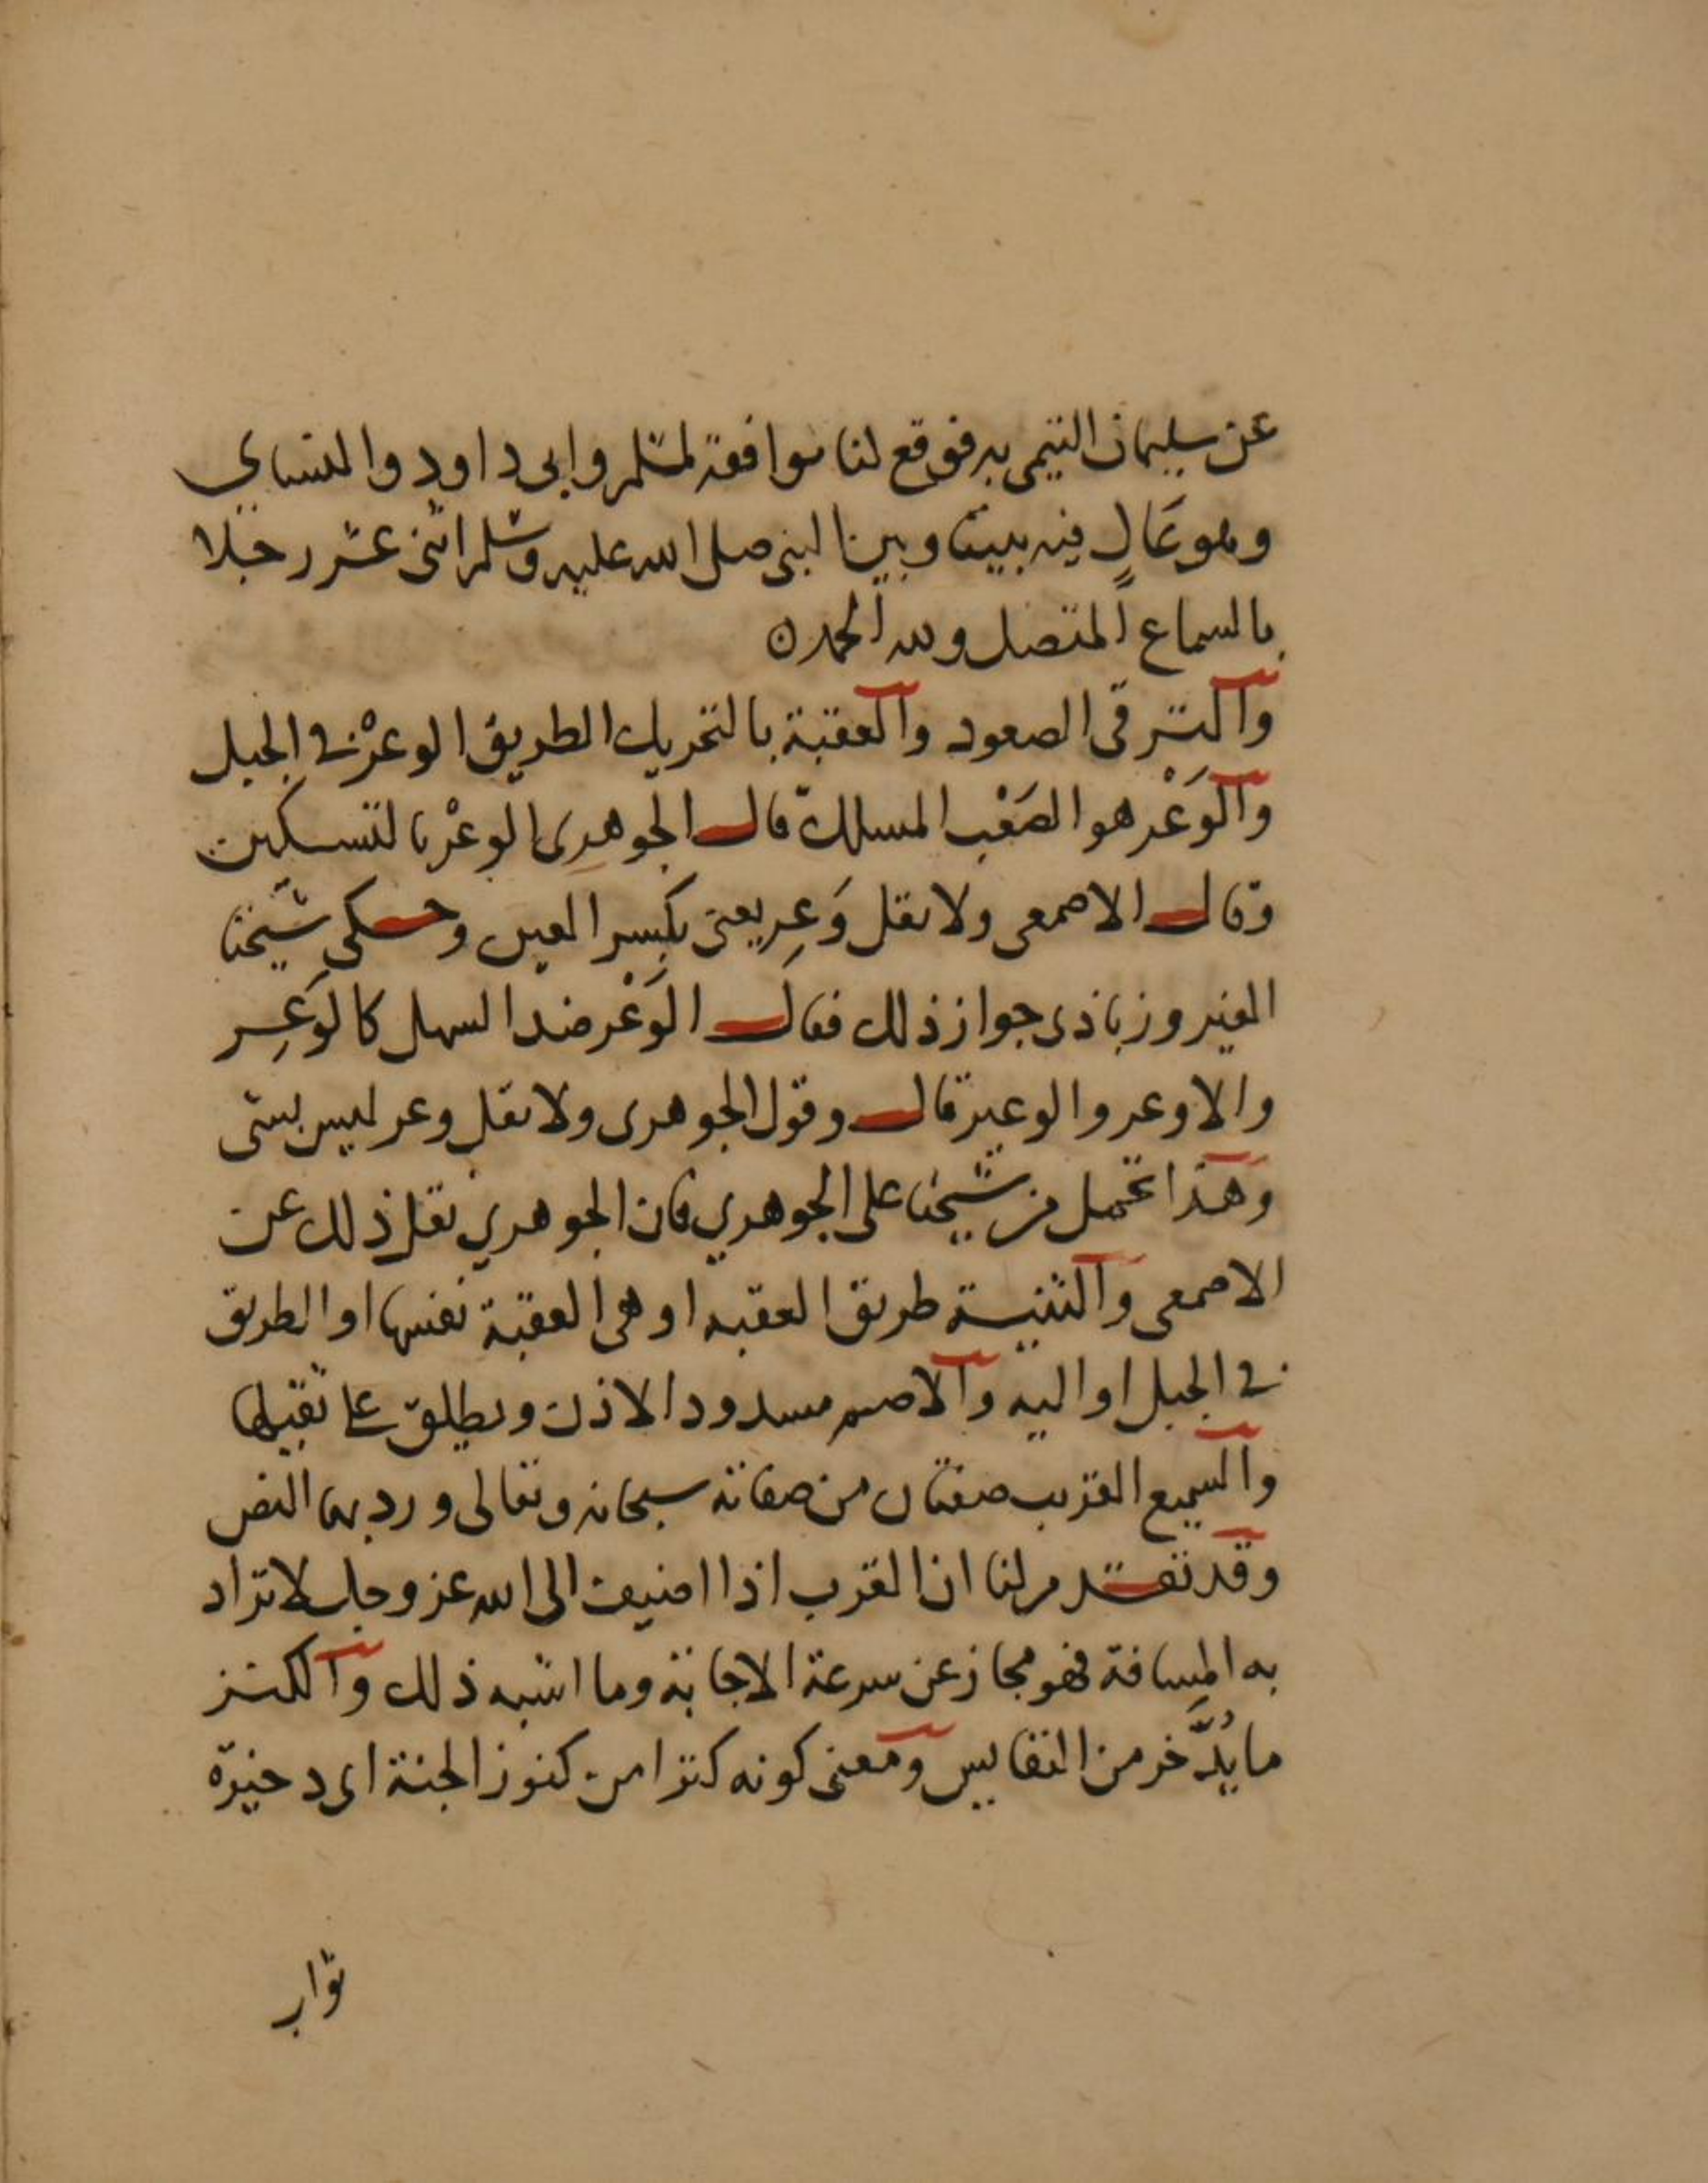 عن سليمان التيمي به فوقع لنا موافقة لمسلم وابى داود والنساي
وهو عَالٍ فيه بيننا وبين النبى صلى الله عليه وسلم اثنى عشر رجلا
بالسماع المتصل ولله الحمد ن
والترقى الصعود والعقبة بالتحريك الطريق الوعْر في الجبل
والوَعْر هو الصَعْب المسلك قال الجوهرى الوعْر بالتسكين
وقال الاصمعى ولا تقل وَعِر يعنى بكسر العين وحكى شيخنا
الفيروزباذى جواز ذلك فقال الوَعْر ضد السهل كالوَعِر
والاوعر والوعير قال وقول الجوهرى ولا تقل وعر ليس بشى
وهذا تحمل من شيخنا على الجوهري فان الجوهري نقل ذلك عن
الاصمعى والثنية طريق العقبه او هى العقبة نفسها او الطريق
في الجبل او اليه والاصم مسدود الاذن ويطلق على ثقيلها
والسميع القريب صفتان من صفاته سبحانه وتعالى ورد بهما النص
وقد تقدم لنا ان القرب اذا اضيف الى الله عز وجل لا تراد
به المسافة فهو مجاز عن سرعة الاجابة وما اشبه ذلك والكنز
ما يُدَّخر من النفايس ومعنى كونه كنزا من كنوز الجنة اى دخيرة
ثواب